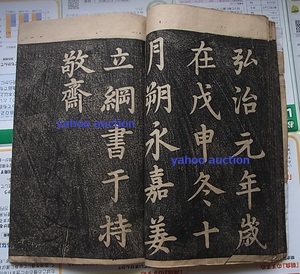 弘治元年歳
在戊申冬十
月朔永嘉姜
立綱書于持
敬齋
yahoo auction
yahoo auction